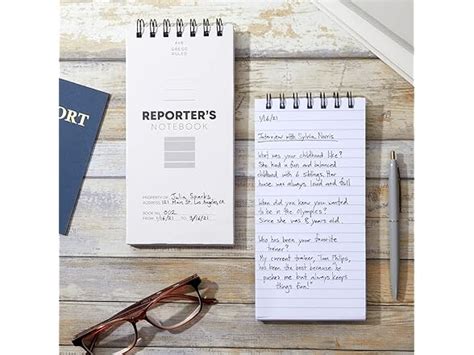 4x8
GREGG
RULED
REPORTER'S
NOTEBOOK
PROPERTY OF Julia Sparks
ADDRESS 121 Main St. Los Angeles, CA
BOOK NO. 002
FROM 1/16/21 TO 3/16/21
PORT
3/16/21
Interview with Sylvia Norris
What was your childhood like?
She had a fun and balanced
childhood with 6 siblings. Her
house was always loud and full
When did you know you wanted
to be in the Olympics?
Since she was 8 years old
Who has been your favorite
trainer?
My current trainer, Tom Philips,
has been the best because he
pushes me but always keeps
things fun!